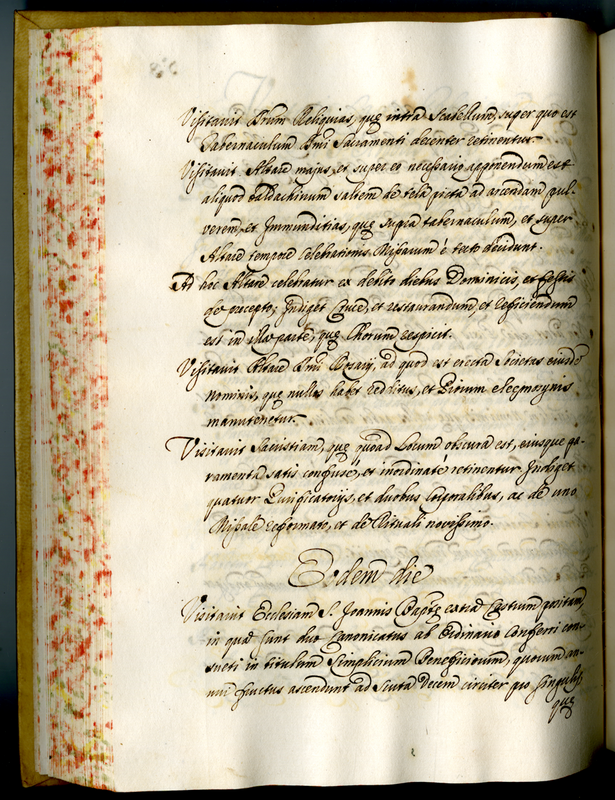 Visitavit Sacras Reliquias, quę intra Scabellum, super quo est
Tabernaculum Smi Sacramenti decenter retinentur.
Visitavit Altare majus, et super eo necessario apponendum est
aliquod baldachinum saltem de tela picta ad arcendam pul-
verem, et Immunditias, quę supra tabernaculum, et super
Altare tempore celebrationis Missarum è tecto decidunt.
Ad hoc Altare celebratur ex debito diebus Dominicis, et festis
de precepto; Indiget Cruce, et restaurandum, et reficiendum
est in illa parte, quę Chorum respicit.
Visitavit Altare Smi Rosarij, ad quod est erecta Societas eiusdẽ
nominis, que nullos habet redditus, et Piorum eleęmosynis
manutenetur.
Visitavit Sacristiam, quę quoad Locum obscura est, eiusque pa-
ramenta satis confusè, et inordinatè retinentur Indiget
quatuor Purificatorijs, et duobus Corporalibus, ac de uno
Missale reformato, et de Rituali novissimo.
Eodem die
Visitavit Ecclesiam S. Joannis Baptę extra Castrum positam,
in qua sunt duo Canonicatus ab Ordinario Conferri con-
sueti in titulum Simplicium Beneficiorum, quorum an-
nui fructus ascendunt ad Scuta Decem circiter pro singulis,
quę